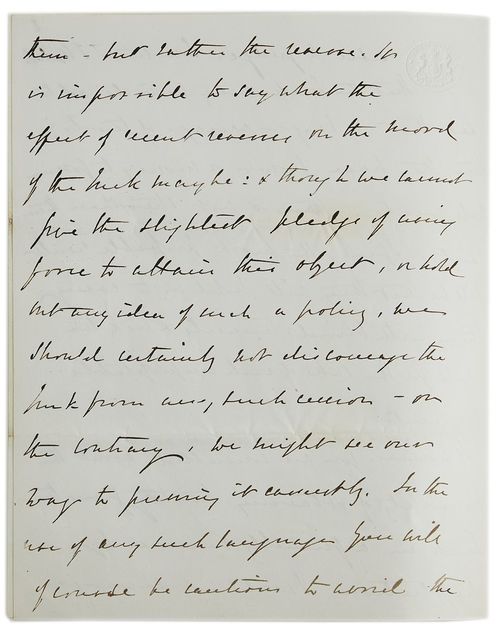 them - but rather the reverse. It
is impossible to say what the
effect of recent reverses on the mood
of the Turk may be : & though we cannot
give the slightest pledge of using
force to attain this object, or hold
out any idea of such a policy, we
should certainly not discourage the
Turk from any such cession - on
the contrary, we might see our
way to pressing it earnestly. In the
use of any such language you will
of course be cautious to avoid the